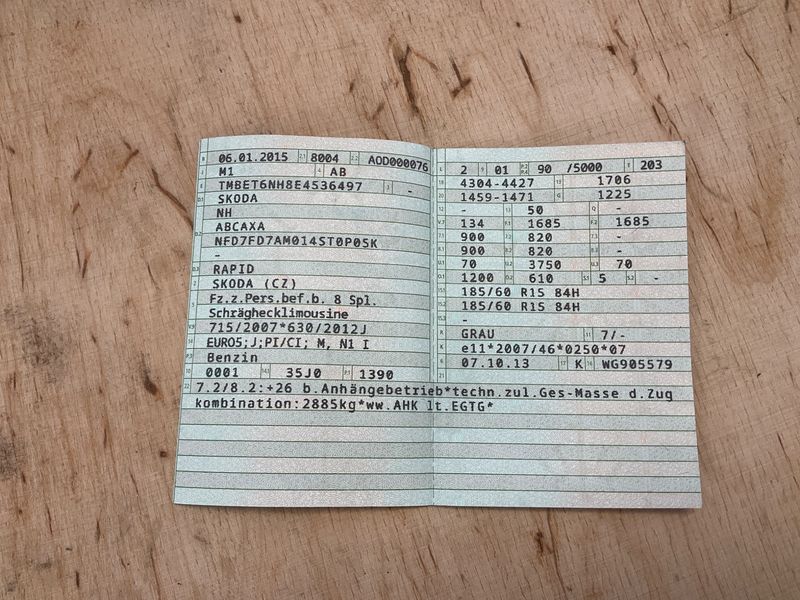 06.01.2015 8004 AOD000076
M1 AB
TMBET6NH8E4536497 -
SKODA
NH
ABCAXA
NFD7FD7AM014ST0P05K
-
RAPID
SKODA (CZ)
Fz.z.Pers.bef.b. 8 Spl.
Schräghecklimousine
715/2007*630/2012J
EURO5;J;PI/CI; M, N1 I
Benzin
0001 35J0 1390
2 01 90 /5000 203
4304-4427 1706
1459-1471 1225
- 50 -
134 1685 1685
900 820 -
900 820 -
70 3750 70
1200 610 5 -
185/60 R15 84H
185/60 R15 84H
-
GRAU 7/-
e11*2007/46*0250*07
07.10.13 K WG905579
7.2/8.2:+26 b.Anhängebetrieb*techn.zul.Ges-Masse d.Zug
kombination:2885kg*ww.AHK lt.EGTG*